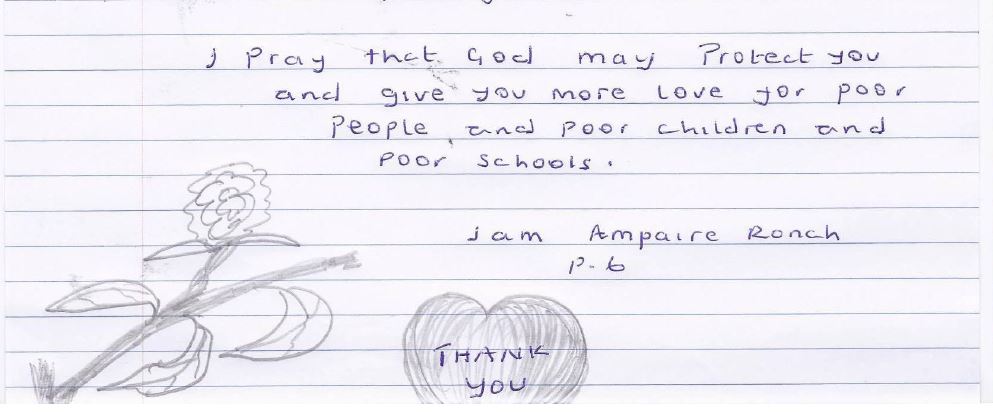 I Pray that God may Protect you
and give you more love for poor
People and poor children and
poor schools.
I am Ampaire Ronah
P-6
THANK
YOU